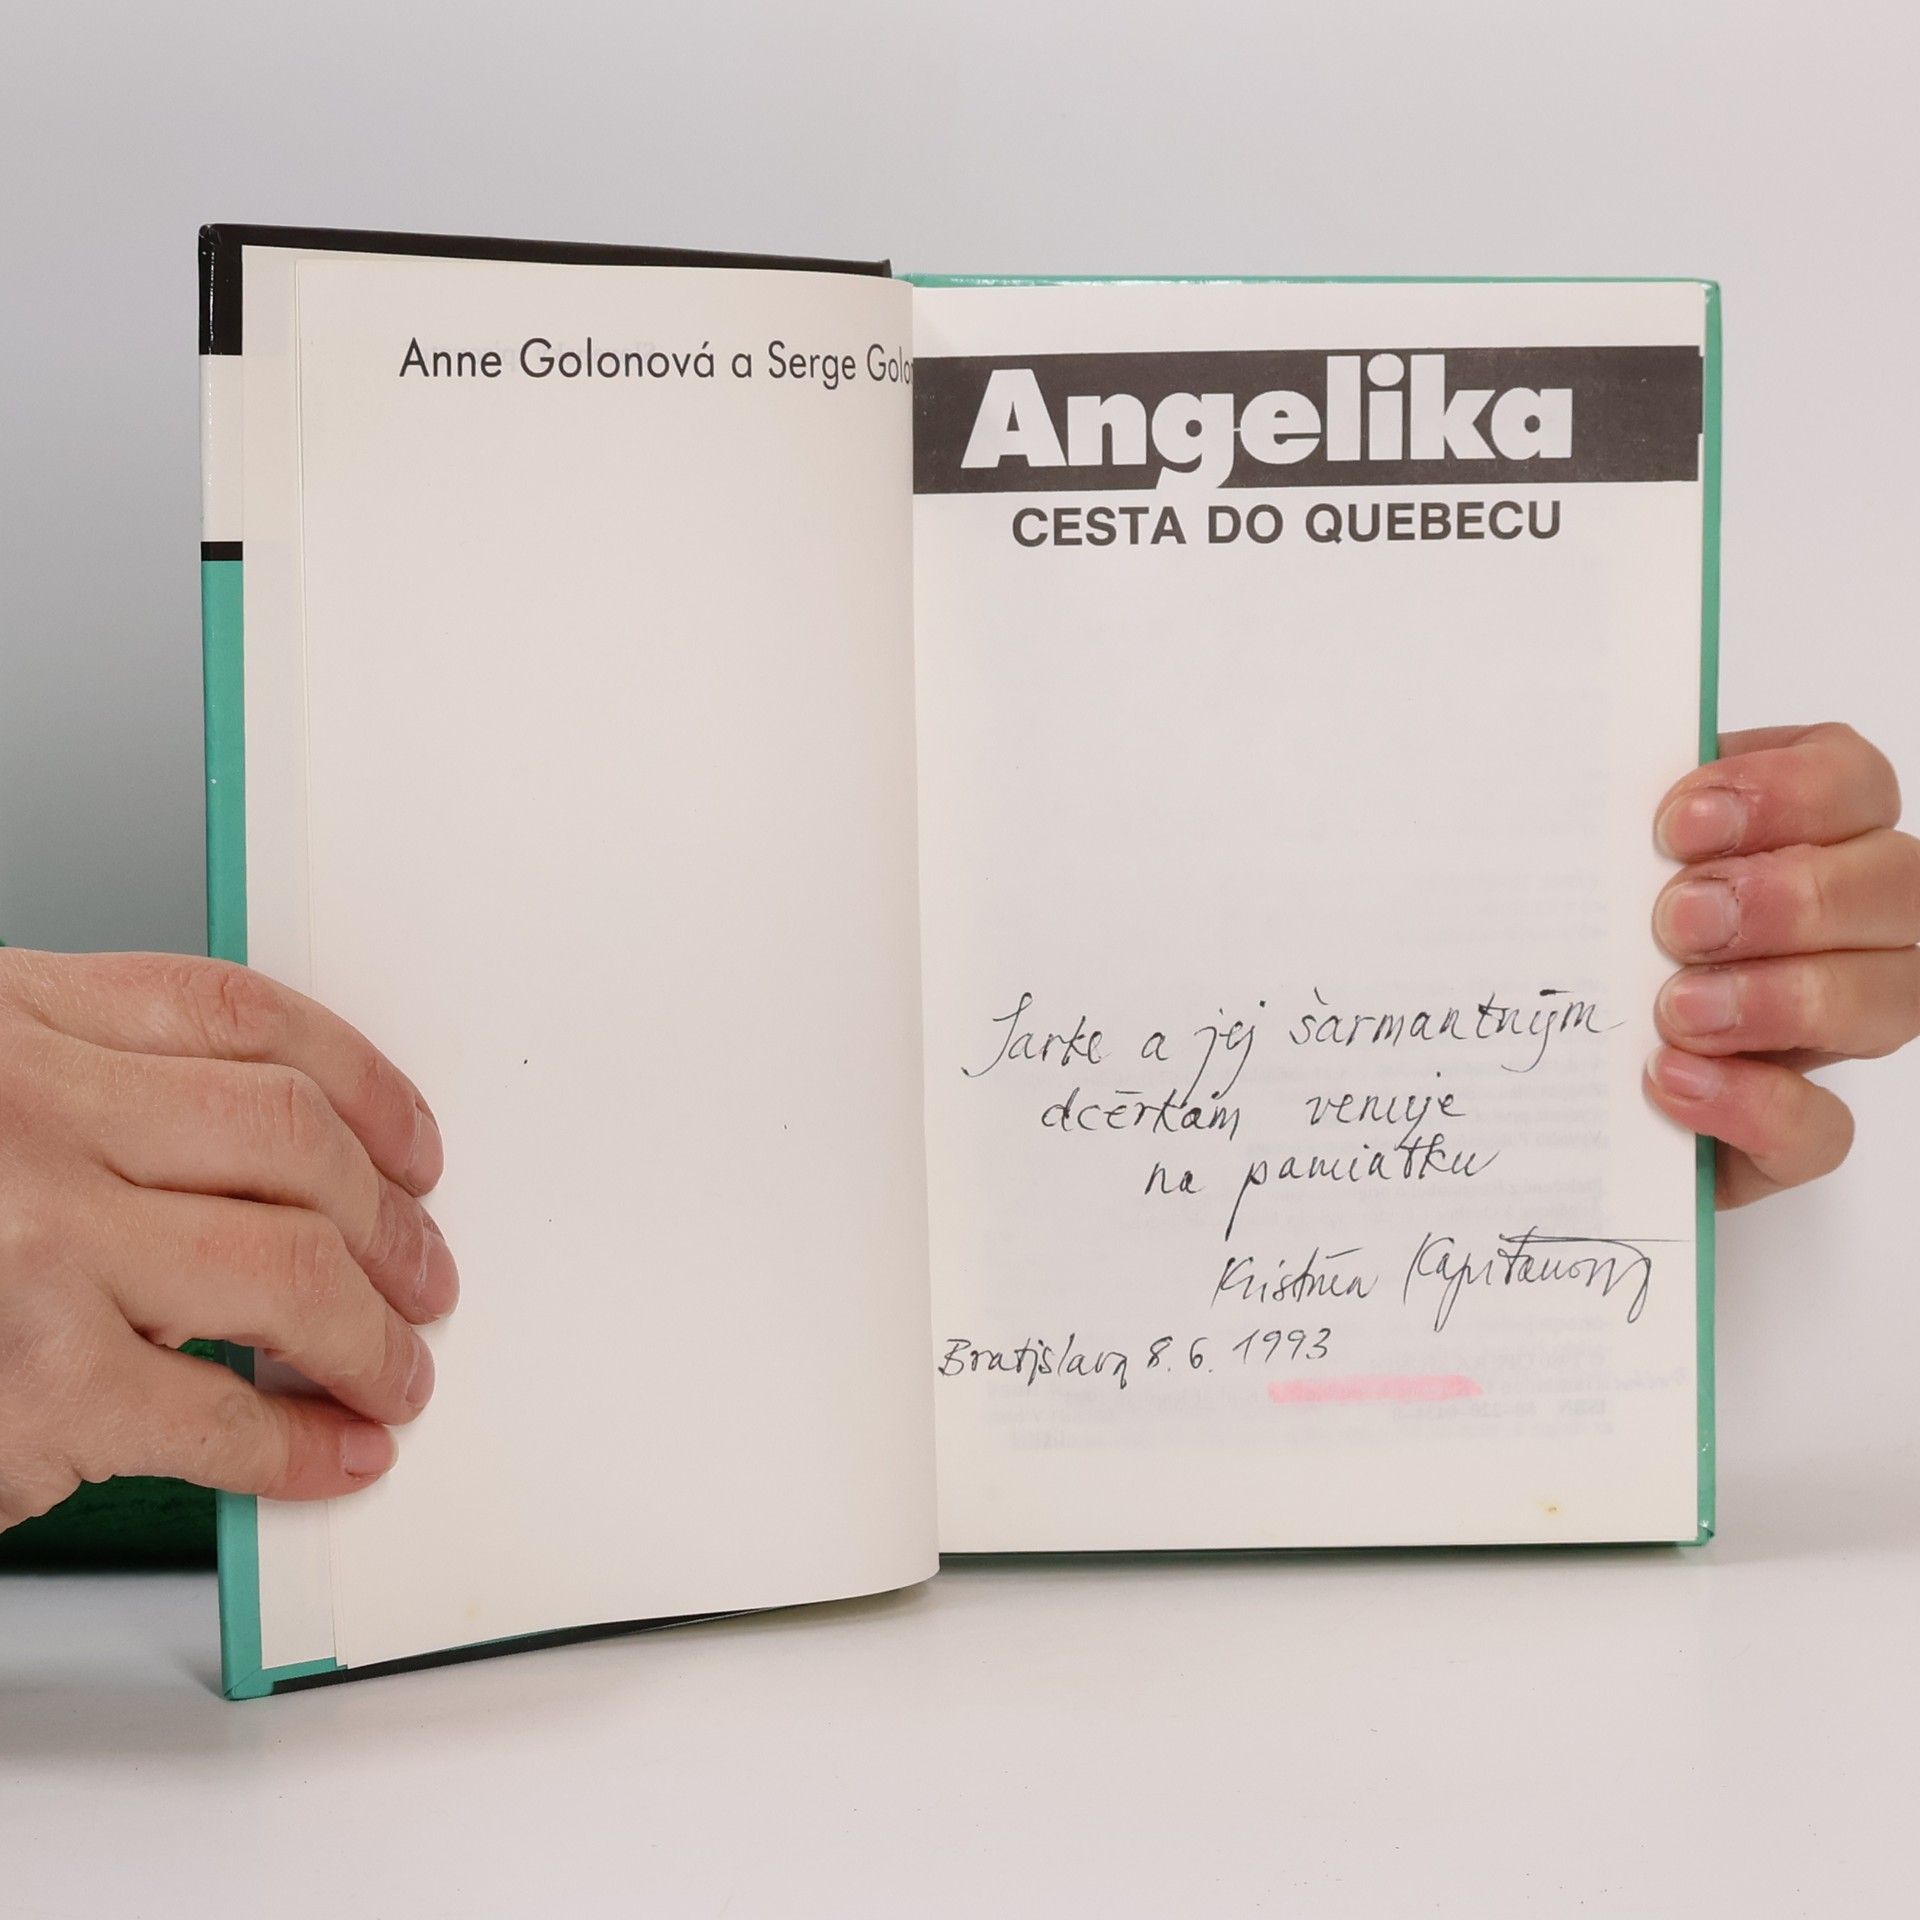 Anne Golonová a Serge Golo
Angelika
CESTA DO QUEBECU
Jarke a jej šarmantným
dcérkám venuje
na pamiatku
Kristína Kapitanová
Bratislava 8. 6. 1993